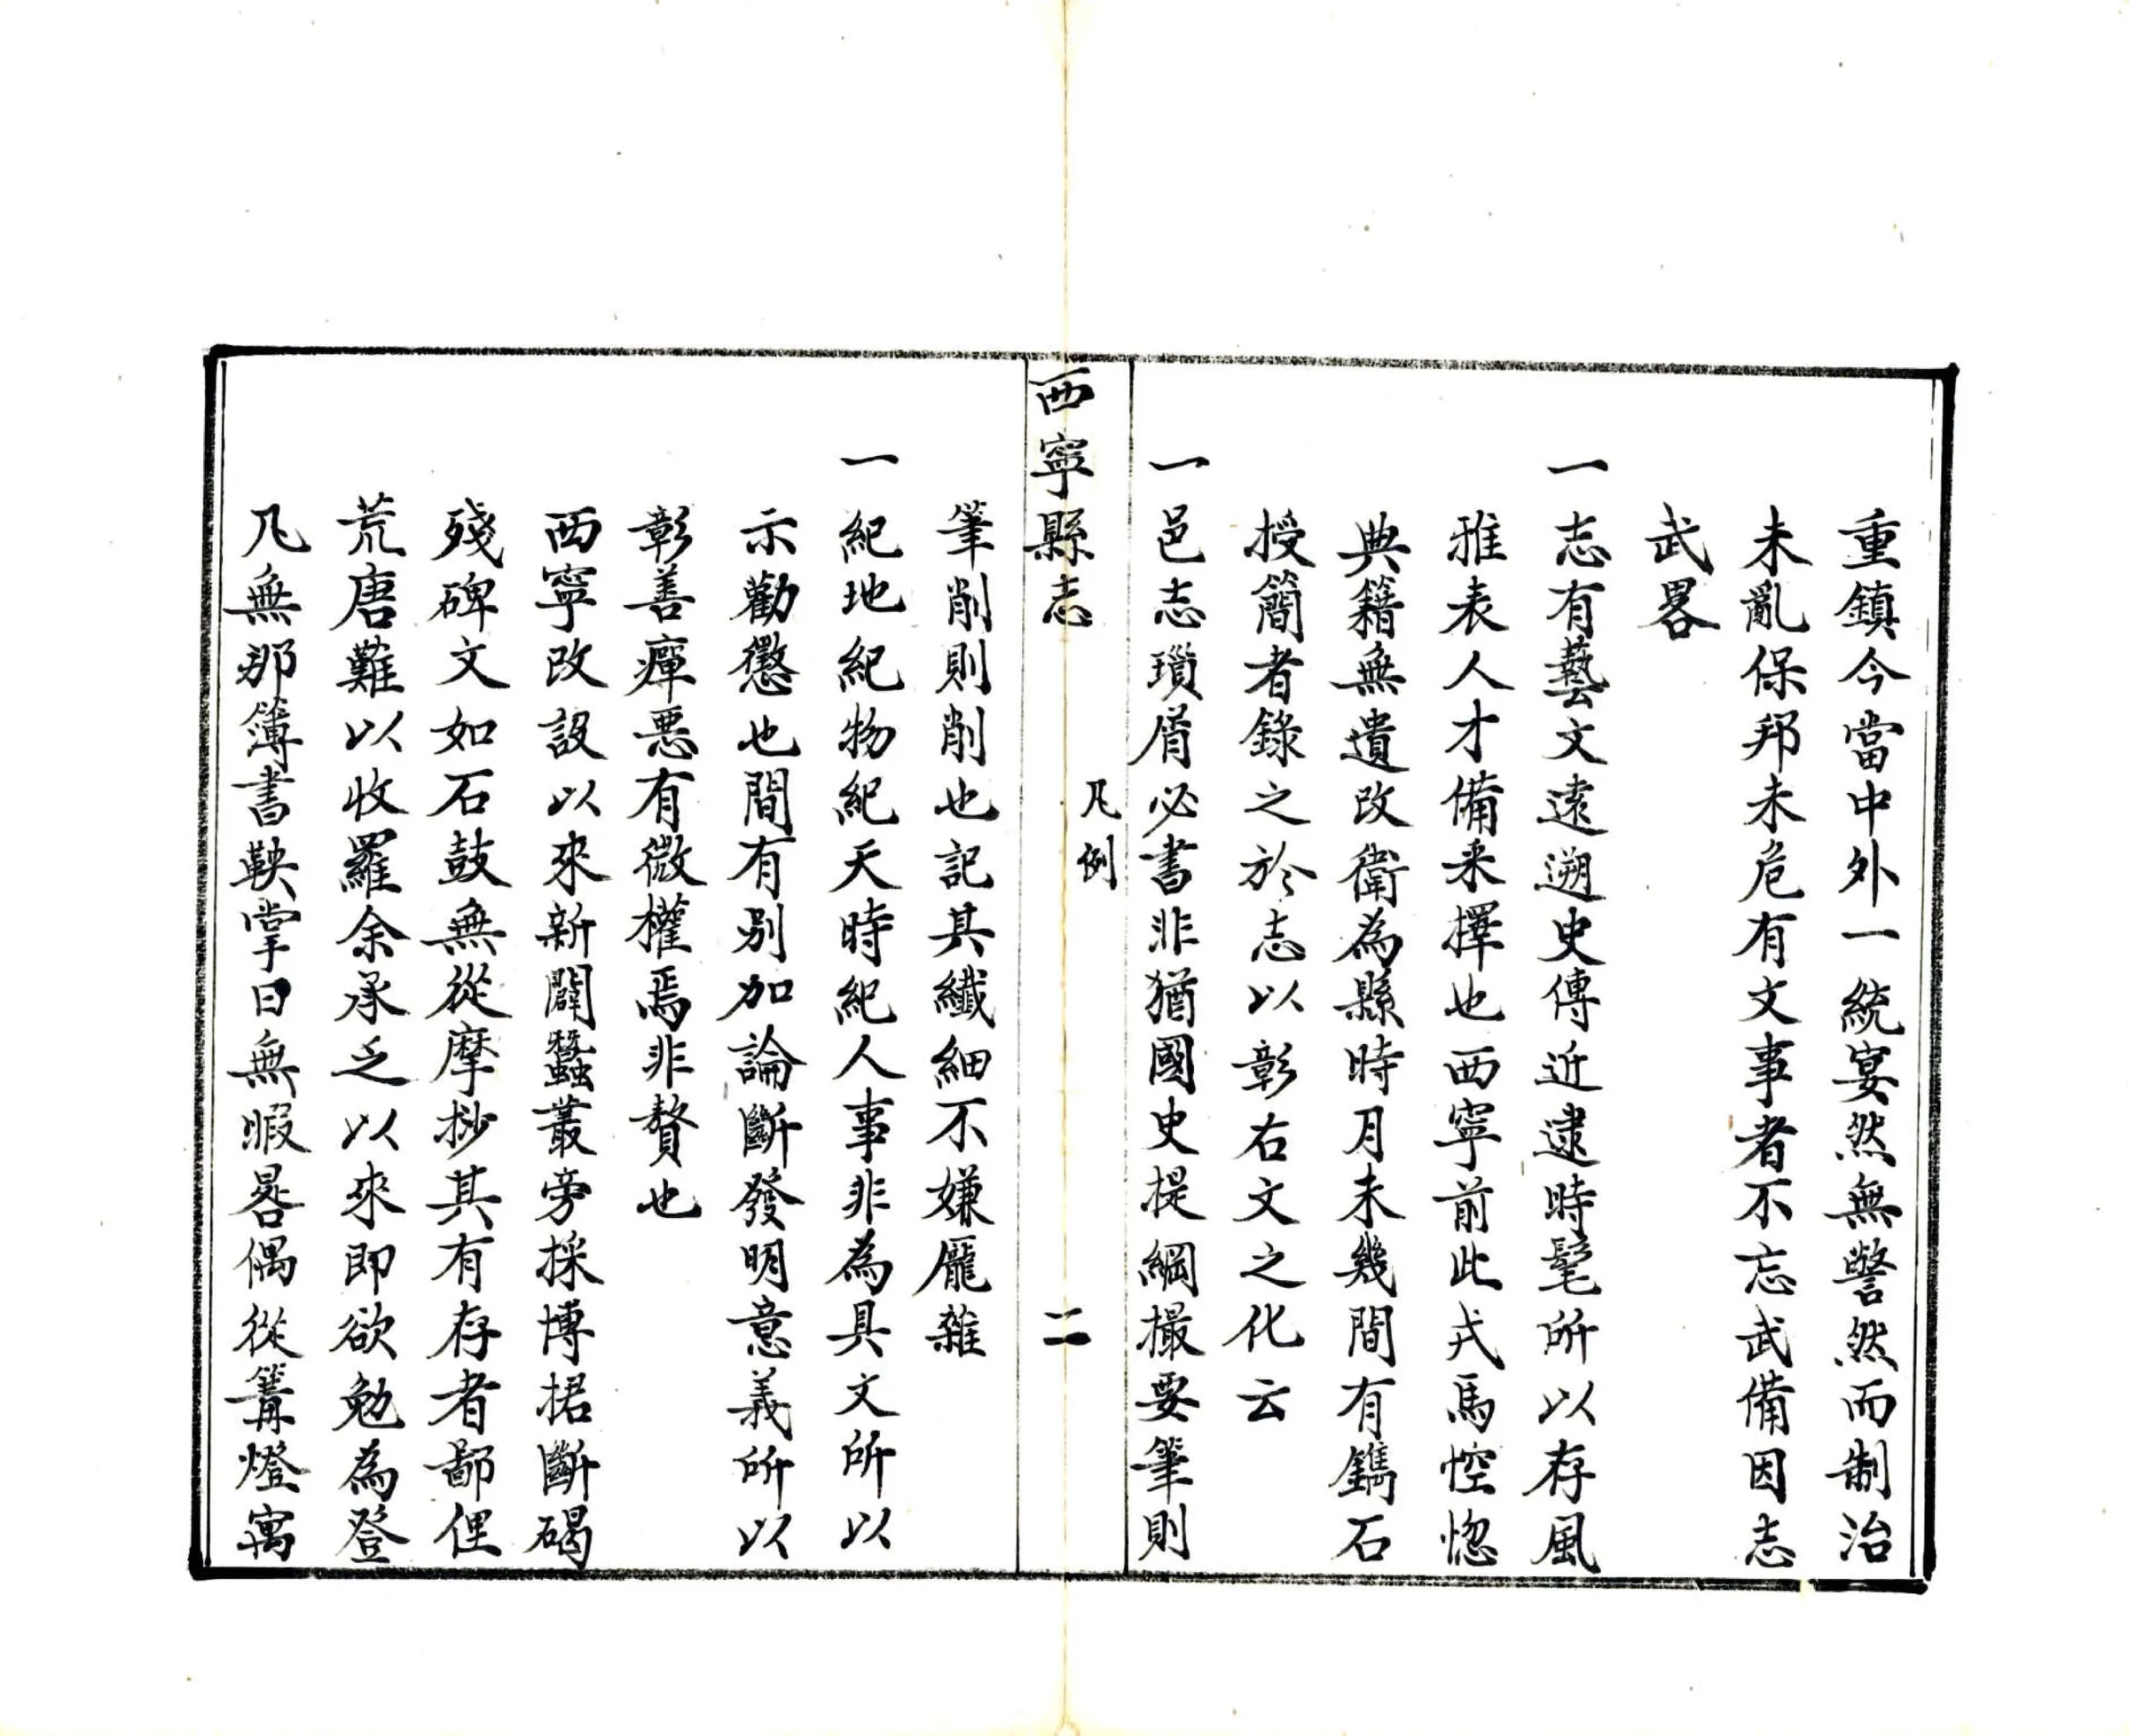 重鎮今當中外一統宴然無警然而制治
未亂保邦未危有文事者不忘武備因志
武畧
一志有藝文遠遡史傳近逮時髦所以存風
雅表人才備采擇也西寧前此戎馬悾惚
典籍無遺改衛為縣時月未幾間有鐫石
授簡者錄之於志以彰右文之化云
一邑志瑣屑必書非猶國史提綱撮要筆則
西寧縣志
凡例
二
筆削則削也記其纖細不嫌龐雜
一紀地紀物紀天時紀人事非為具文所以
示勸懲也間有別加論斷發明意義所以
彰善癉惡有微權焉非贅也
西寧改設以來新闢蠶叢旁採博捃斷碣
殘碑文如石鼓無從摩抄其有存者鄙俚
荒唐難以收羅余承乏以來即欲勉為登
凡無那簿書鞅掌日無暇晷偶從篝燈寓